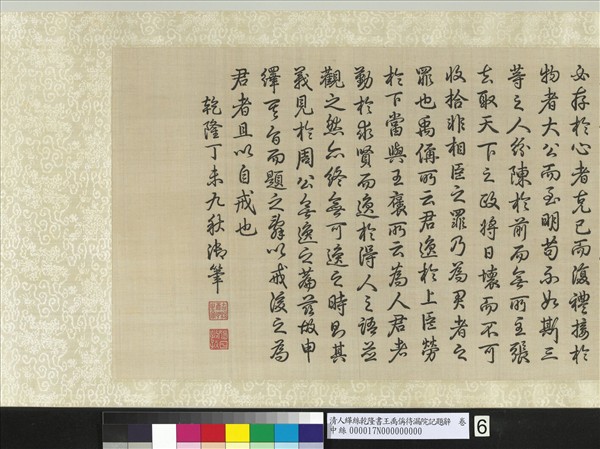 必存於心者克己而復禮接於
物者大公而至明苟不如斯三
等之人紛陳於前而無所主張
去取天下之政將日壞而不可
收拾非相臣之罪乃為君者之
罪也禹偁所云君逸於上臣勞
於下當與王褒所云為人君者
勤於求賢而逸於得人之語並
觀之然亦終無可逸之時則其
義見於周公無逸之篇茲故申
繹其旨而題之辭以戒後之為
君者且以自戒也
乾隆丁未九秋御筆
清人緙絲乾隆書王禹偁待漏院記題辭 卷
中絲 000017N000000000
6